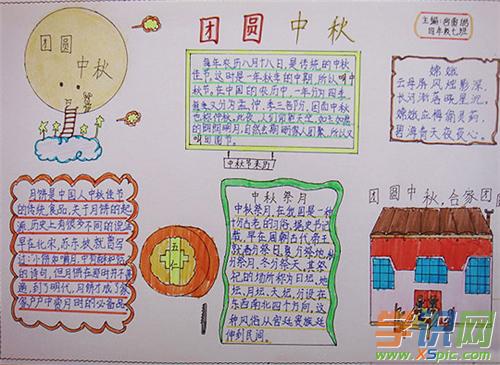 团圆中秋
主编:
四年级七班
团圆
中秋
每年农历八月十八日,是传统的中秋
佳节。这时是一年秋季的中期,所以叫中
秋节。在中国的农历中,一年分为四季,
每季又分为孟、仲、季三部分,因而中秋
也称仲秋。此夜,人们仰望天空,如玉如盘
的朗朗明月,自然会期盼家人团聚,所以又
叫团圆节。
中秋节来历
嫦娥
云母屏风烛影深,
长河渐落晓星沉。
嫦娥应悔偷灵药,
碧海青天夜夜心。
月饼是中国人中秋佳节
的传统食品,关于月饼的起
源,历史上有很多不同的说法
早在北宋,苏东坡就曾写
过"小饼如嚼月,中有酥和饴"
的诗句,但月饼在那时并不普
遍,到了明代,月饼才成了家
家户户中秋月时的必备品。
五仁
中秋祭月
中秋祭月,在我国是一种
十分古老的习俗。据史书记
载,早在周朝,古代帝王
就有春分祭日、夏分祭地、秋
分祭月、冬分祭天,其祭
祀的场所称为日坛、地
坛、月坛、天坛,分设在
东西南北四个方向,这
种风俗从宫廷贵族延
伸到民间。
团圆中秋,合家团圆
学识网
www.XSpic.com